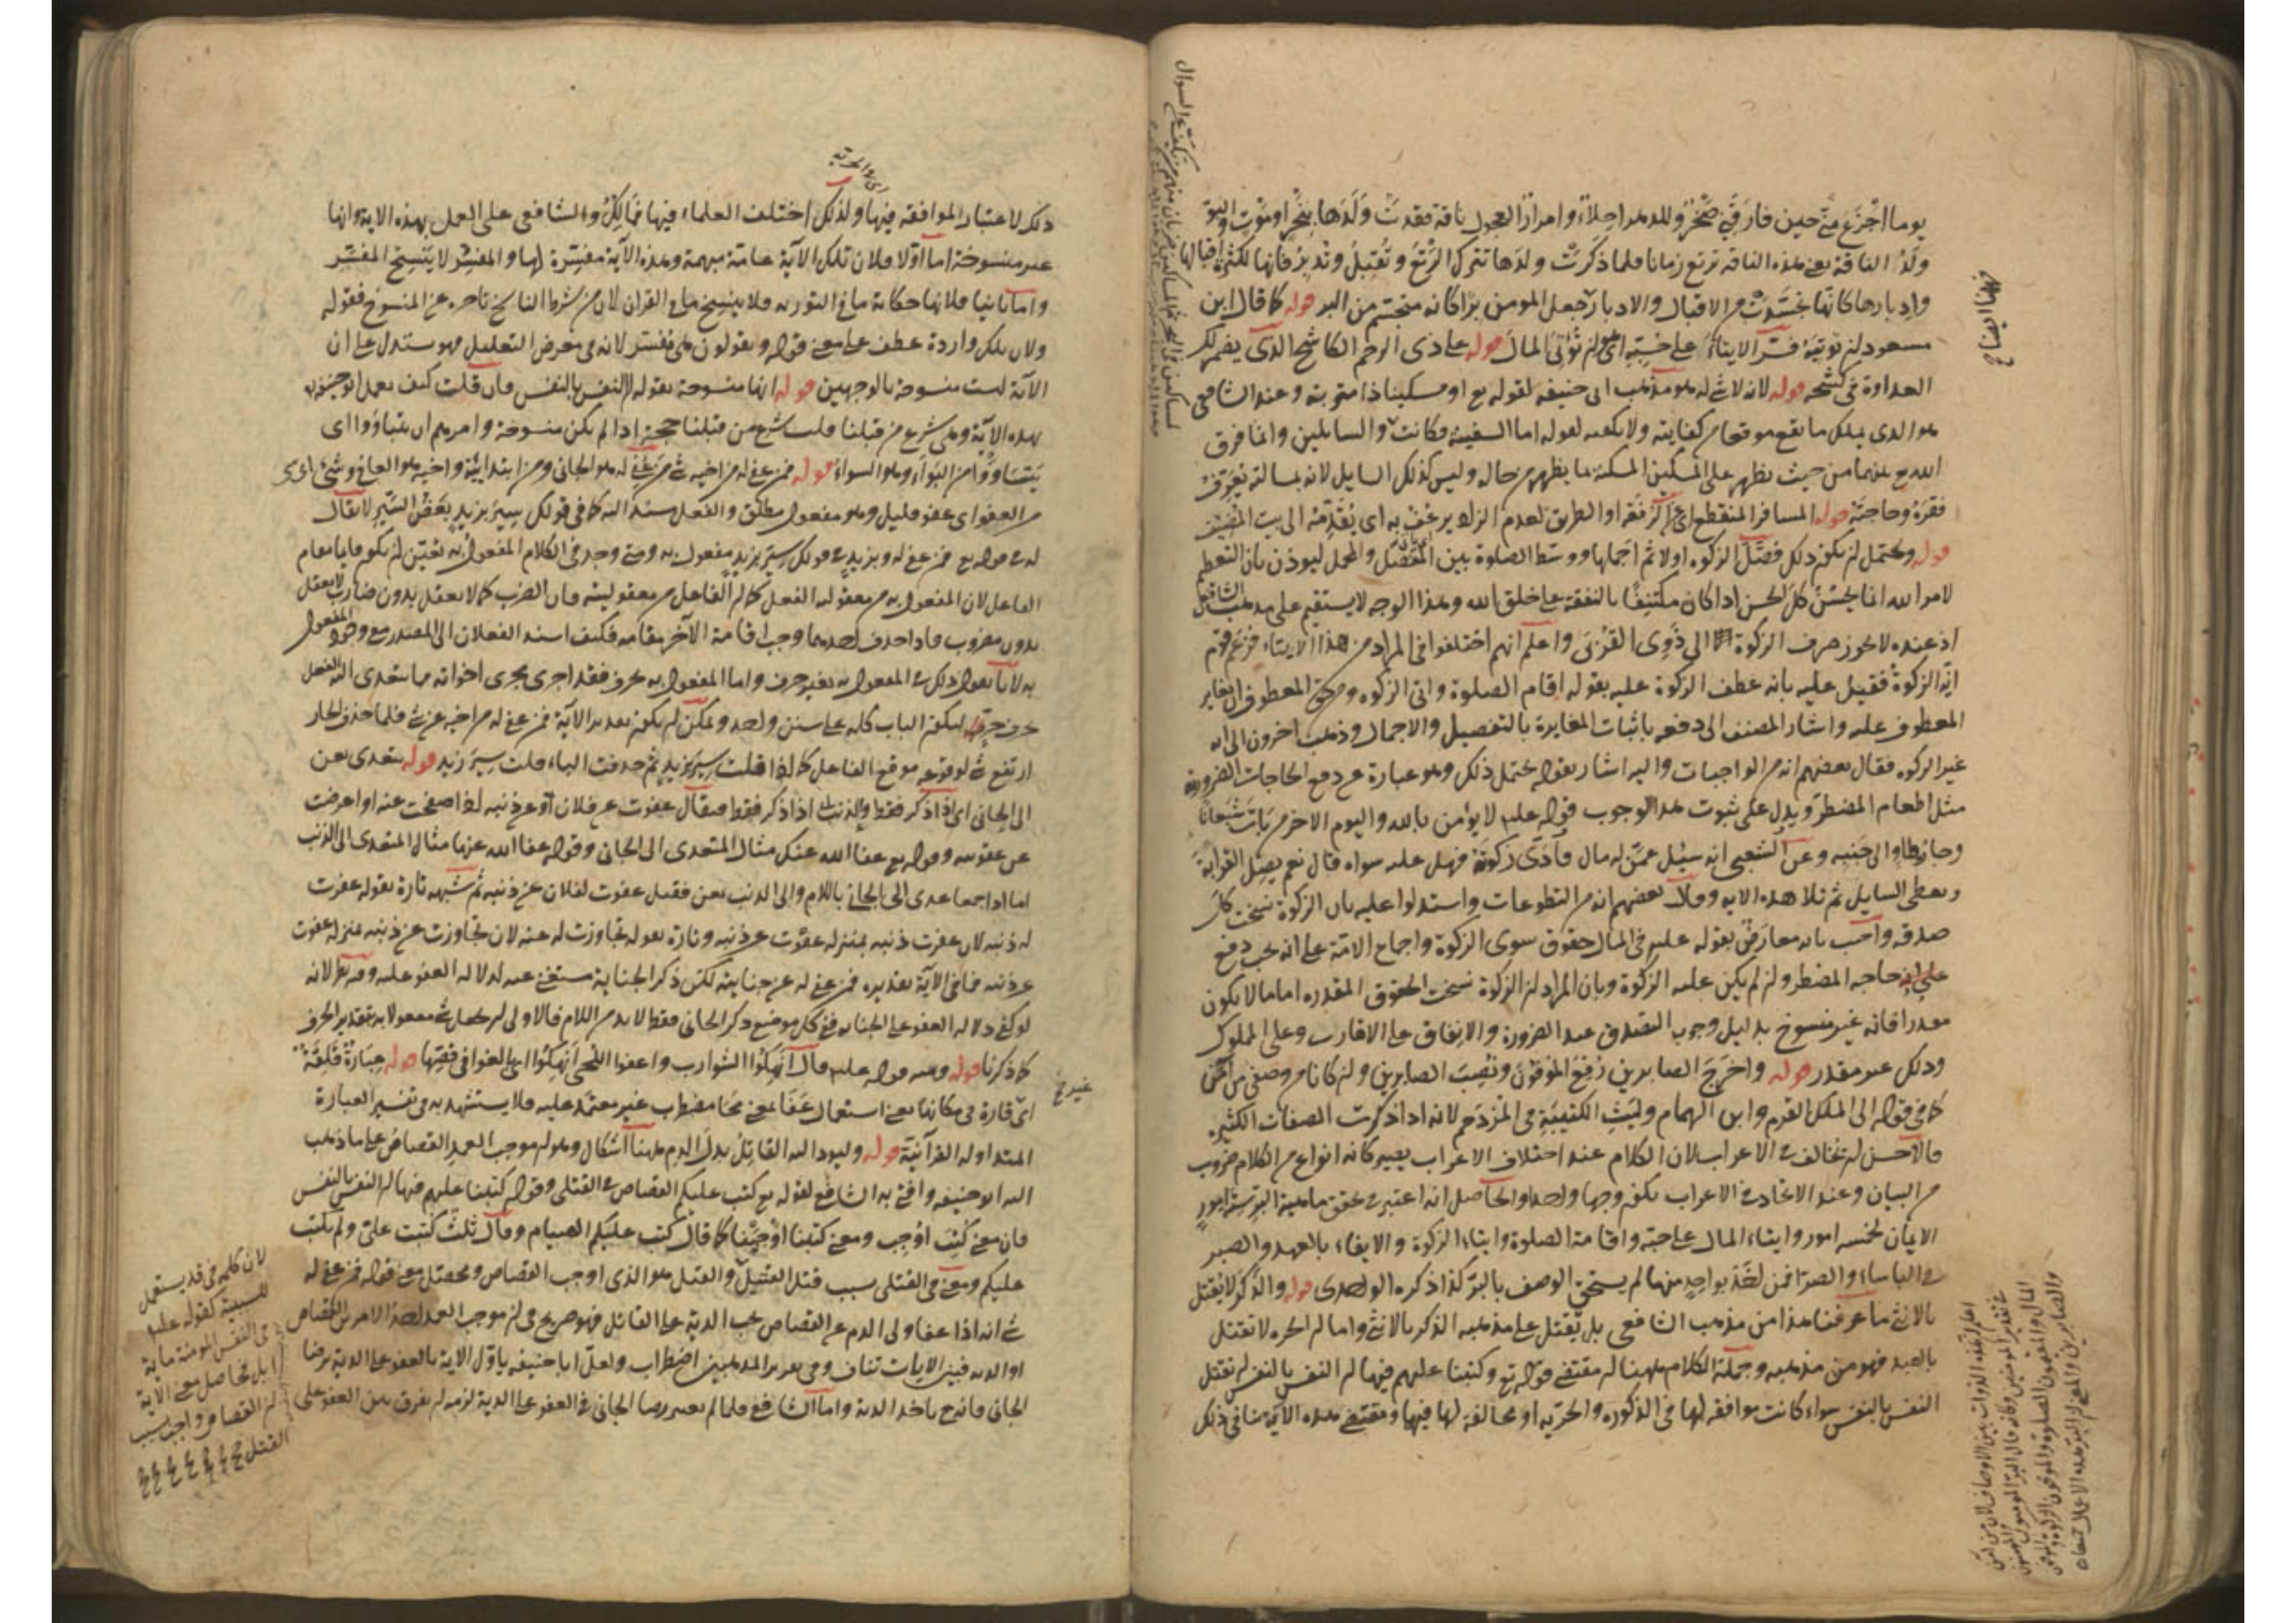 يوما اجزع مني حين فارقني صخر وللدهر احلاء وامرار العجول ناقة فقدت ولدها بنحر او موت والبو
ولد الناقة يعني هذه الناقة ترتع زمانا فلما ذكرت ولدها تترك الرتع وتقبل وتدبر فانها لكثرة اقبالها
وادبارها كانها تجسدت من الاقبال والادبار جعل المومن برا كانه متجسم من البر قوله كما قال ابن
مسعود ان توتيه فسر الايتاء على حبه اي ان تؤتى المال قوله على ذي الرحم الكاشح الذي يضمر لك
العداوة في كشحه قوله لانه لا شي له هو مذهب ابي حنيفة لقوله تع او مسكينا ذا متربة وعند الشافعي
هو الذي يملك ما يقع موقعا من كفايته ولا يكفيه لقوله اما السفينة فكانت والسايلين وانما فرق
الله تع بينهما من حيث يظهر على المسكين المسكنة بما يظهر من حاله وليس كذلك السايل لانه بمسالته يعرف
فقره وحاجته قوله المسافر المنقطع اي عن الرفقة او الطريق لعدم الزاد يرعف به اي يقدمه الى بيت المضيف
قوله ويحتمل ان يكون ذلك فصل الزكوة اولا ثم اجملها ووسط الصلوة بين المفصل والمجمل ليوذن بان التعظيم
لامر الله انما يحسن كل الحسن اذا كان مكتنفا بالشفقة على خلق الله وهذا الوجه لا يستقيم على مذهب الشافعي
اذ عنده لا يجوز صرف الزكوة الى ذوي القربى واعلم انهم اختلفوا في المراد من هذا الايتاء فزعم قوم
انه الزكوة فقيل عليه بانه عطف الزكوة عليه بقوله اقام الصلوة واتى الزكوة ومن حق المعطوف ان يغاير
المعطوف عليه واشار المصنف الى دفعه باثبات المغايرة بالتفصيل والاجمال وذهب اخرون الى انه
غير الزكوة فقال بعضهم انه من الواجبات واليه اشار بقوله يحتمل ذلك وهو عبارة عن دفع الحاجات الضرورية
مثل اطعام المضطر ويدل على ثبوت هذا الوجوب قوله عليه لا يؤمن بالله واليوم الاخر من بات شبعانا
وجاره طاو الى جنبه وعن الشعبي انه سئل عمن له مال فادى زكوته فهل عليه سواه قال نعم يصل القرابة
ويعطي السايل ثم تلا هذه الاية وقال بعضهم انه من التطوعات واستدلوا عليه بان الزكوة نسخت كل
صدقة واجيب بانه معارض بقوله عليه في المال حقوق سوى الزكوة واجماع الامة على انه يجب دفع
حاجة المضطر وان لم يكن عليه الزكوة وبان المراد ان الزكوة نسخت الحقوق المقدرة اما ما لا يكون
مقدرا فانه غير منسوخ بدليل وجوب التصدق عند الضرورة والانفاق على الاقارب وعلى المملوك
وذلك غير مقدر قوله واخرج الصابرين رفع الموفون ونصب الصابرين وان كانا من وصفي من آمن
كما في قوله الى الملك القرم وابن الهمام وليث الكتيبة في المزدحم لانه اذا ذكرت الصفات الكثيرة
فالاحسن ان تخالف في الاعراب لان الكلام عند اختلاف الاعراب يصير كانه انواع من الكلام ضروب
من البيان وعند الاتحاد في الاعراب يكون وجها واحدا والحاصل انه اعتبر في تحقق ماهية البر ستة امور
الايمان بخمسة امور وايتاء المال على حبه واقامة الصلوة وايتاء الزكوة والايفاء بالعهد والصبر
في الباساء والضراء فمن اخل بواحد منها لم يستحق الوصف بالبر كذا ذكره الواحدي قوله والذكر لا يقتل
بالانثى ما عرفنا هذا من مذهب الشافعي بل يقتل على مذهبه الذكر بالانثى واما ان الحر لا يقتل
بالعبد فهو من مذهبه وجملة الكلام ههنا ان مقتضى قوله تع وكتبنا عليهم فيها ان النفس بالنفس ان تقتل
النفس بالنفس سواء كانت موافقة لها في الذكورة والحرية او مخالفة لها فيها ومقتضى هذه الآية ينافي ذلك
ذلك لاعتبار الموافقة فيها ولذلك اختلف العلماء فيها فمالك والشافعي على العمل بهذه الاية وانها
غير منسوخة اما اولا فلان تلك الآية عامة مبهمة وهذه الآية مفسرة لها والمفسر لا ينسخ المفسر
واما ثانيا فلانها حكاية ما في التورية فلا ينسخ ما في القران لان من شرط الناسخ تاخره عن المنسوخ فقوله
ولان تلك واردة عطف على معنى قوله ويقولون هي مفسر لانه في معرض التعليل فهو ستدل على ان
الآية ليست منسوخة بالوجهين قوله انها منسوخة بقوله النفس بالنفس فان قلت كيف يعمل ابو حنيفة
بهذه الآية وهي شرع من قبلنا قلت شرع من قبلنا حجة اذا لم يكن منسوخة وامرهم ان يتباوؤا اي
يتساووا من البواء وهو السواء قوله فمن عفي له من اخيه شي من عفي له هو الجاني ومن ابتدائية واخيه هو العافي وشي اي شي
من العفو اي عفو قليل وهو مفعول مطلق والفعل مسند اليه كما في قولك سير بزيد بعض السير لا يقال
له في قوله تع فمن عفي له وبزيد في قولك سير بزيد مفعول به ومتى وجد في الكلام المفعول به تعين ان يكون قايما مقام
الفاعل لان المفعول به من معقولية الفعل كما ان الفاعل من معقوليته فان الضرب كما لا يعقل بدون ضارب لا يعقل
بدون مضروب فاذا حذف احدهما وجب اقامة الآخر مقامه فكيف اسند الفعلان الى المصدر مع وجود المفعول
به لانا نقول ذلك في المفعول به بغير حرف واما المفعول به بحرف فقد اجري مجرى اخواته مما يتعدى اليه الفعل
بحرف جر ليكون الباب كله على سنن واحد ويمكن ان يكون تقدير الآية فمن عفي له من اخيه عن شي فلما حذف الجار
ارتفع شي لوقوعه موقع الفاعل كما اذا قلت سير بزيد ثم حذفت الباء قلت سير زيد قوله يتعدى بعن
الى الجاني اي اذا ذكر فقط والذنب اذا ذكر فقط فيقال عفوت عن فلان او عن ذنبه اذا صفحت عنه او اعرضت
عن عقوبته وقوله تع عفا الله عنك مثال المتعدي الى الجاني وقوله عفا الله عنها مثال المتعدي الى الذنب
اما اذا اجمعا عدي الى الجاني باللام والى الذنب بعن فقيل عفوت لفلان عن ذنبه ثم شبهه تارة بقوله غفرت
له ذنبه لان غفرت ذنبه بمنزلة عفوت عن ذنبه وتارة بقوله تجاوزت له عنه لان تجاوزت عن ذنبه بمنزلة عفوت
عن ذنبه فما في الآية تقديره فمن عفي له عن جنايته لكن ذكر الجناية مستغنى عنه لدلالة العفو عليه وفيه نظر لانه
لو كفى دلالة العفو على الجناية ففي كل موضع ذكر الجاني فقط لا بد من اللام فالاولى ان يجعل شي مفعولا به بتقدير الحرف
كما ذكرنا قوله ومنه قوله عليه قال انهكوا الشوارب واعفوا اللحى انهكوا اي بالغوا في قصها قوله عبارة قلقة
اي قارة في مكانها يعني استعمال عفا بمعنى محا مضطرب غير معتمد عليه فلا يستشهد به في تفسير العبارة
المتداولة القرآنية قوله وليود اليه القاتل بدل الدم ههنا اشكال وهو ان موجب العمد القصاص على ما ذهب
اليه ابو حنيفة وافتى به الشافعي لقوله تع كتب عليكم القصاص في القتلى وقوله كتبنا عليهم فيها ان النفس بالنفس
فان معنى كتب اوجب ومعنى كتبنا اوجبنا كما قال كتب عليكم الصيام وقال ثلث كتبت علي ولم يكتب
عليكم ومعنى في القتلى بسبب قتل القتيل والقتل هو الذي اوجب القصاص ومحصل معنى قوله فمن عفي له
شي انه اذا عفا ولي الدم عن القصاص يجب الدية على القاتل فهو صريح في ان موجب العمد احد الامرين القصاص
او الدية فبين الايات تناف وفي تقرير المذهبين اضطراب ولعل ابا حنيفة ياول الاية بالعفو على الدية برضا
الجاني فاتبع باخذ الدية واما الشافعي فلما لم يعتبر رضا الجاني في العفو على الدية لزمه ان يفرق بين العفو على
لان كلمة في قد يستعمل
للسببية كقوله عليه
في النفس المومنة ماية
ابل فحاصل معنى الاية
ان القصاص واجب بسبب
القتل